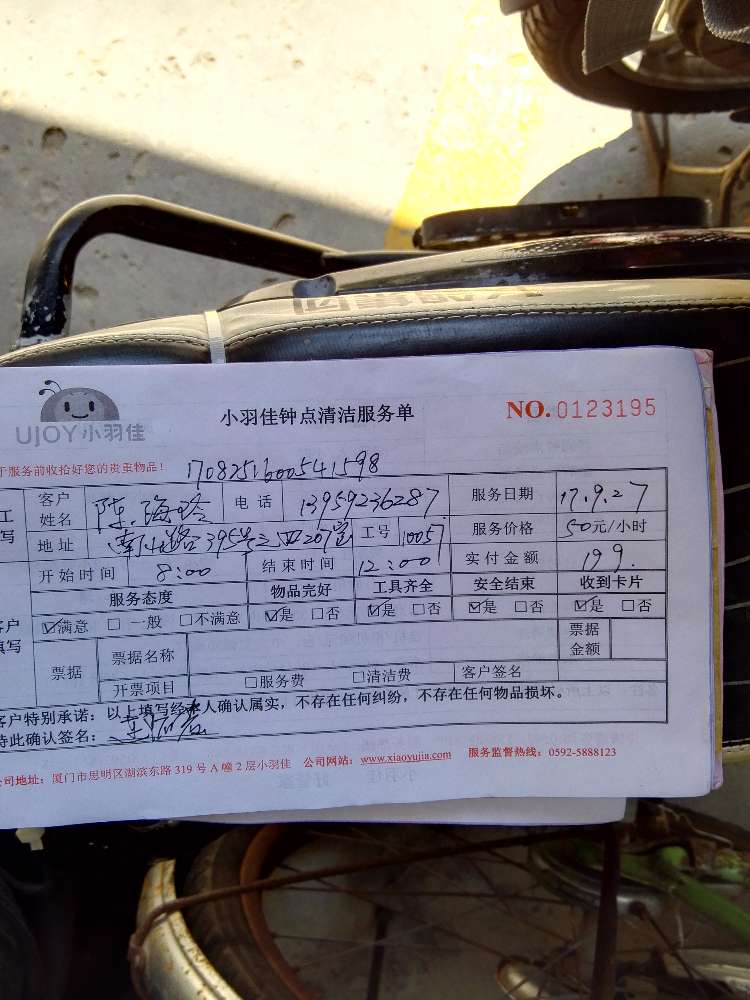 UJOY小羽佳
小羽佳钟点清洁服务单
NO. 0123195
于服务前收拾好您的贵重物品！
170825160054 1598
客户姓名 陈海玲 电话 13959236287 服务日期 17.9.27
地址 395号之四207室 工号 10057 服务价格 50元/小时
开始时间 8:00 结束时间 12:00 实付金额 199.
服务态度 物品完好 工具齐全 安全结束 收到卡片
☑满意 □一般 □不满意 ☑是 □否 ☑是 □否 ☑是 □否 ☑是 □否
票据 票据名称 票据金额
开票项目 □服务费 □清洁费 客户签名
客户特别承诺：以上填写经本人确认属实，不存在任何纠纷，不存在任何物品损坏。
特此确认签名：
公司地址：厦门市思明区湖滨东路 319 号 A 幢 2 层小羽佳 公司网站：www.xiaoyujia.com 服务监督热线：0592-5888123